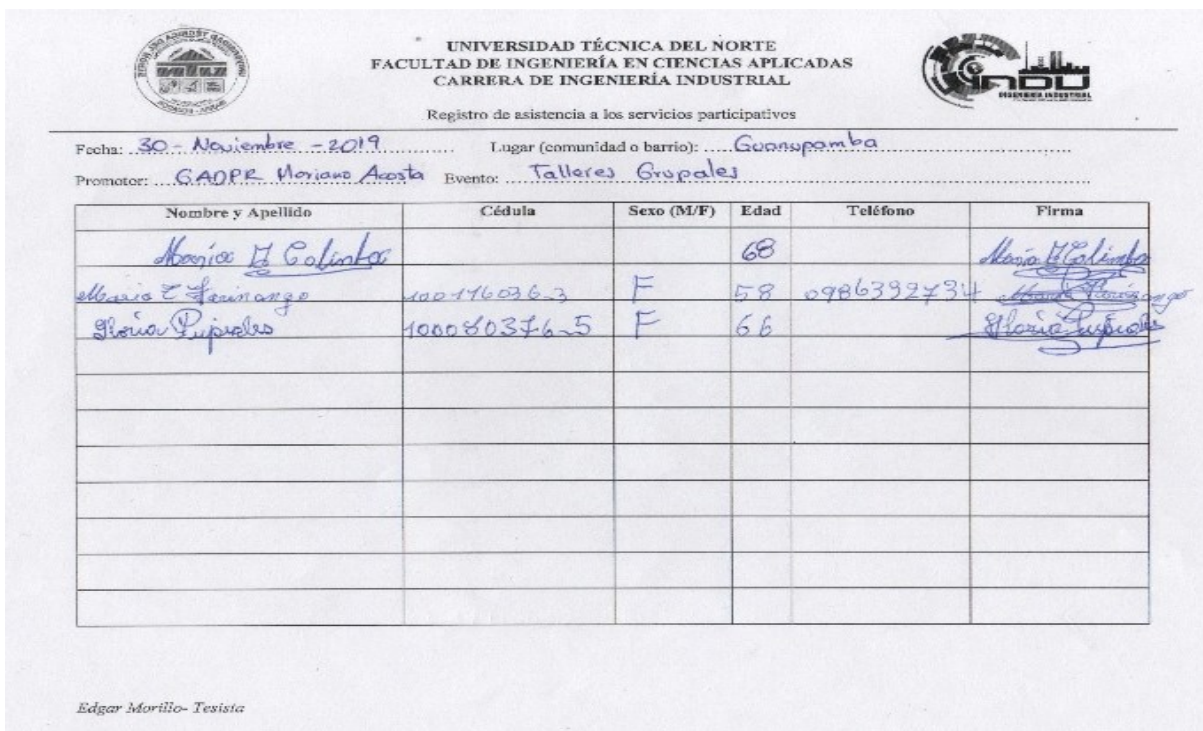 UNIVERSIDAD TÉCNICA DEL NORTE
FACULTAD DE INGENIERÍA EN CIENCIAS APLICADAS
CARRERA DE INGENIERÍA INDUSTRIAL
INDU
INGENIERÍA INDUSTRIAL
Registro de asistencia a los servicios participativos
Fecha: 30 - Noviembre - 2019 Lugar (comunidad o barrio): Guanupamba
Promotor: GADPR Mariano Acosta Evento: Talleres Grupales
Nombre y Apellido Cédula Sexo (M/F) Edad Teléfono Firma
María Colimba 68 María Colimba
Maria E Farinango 100176036-3 F 58 0986392734 Farinango
Gloria Pupiales 100080376-5 F 66 Gloria Pupiales
Edgar Morillo- Tesista